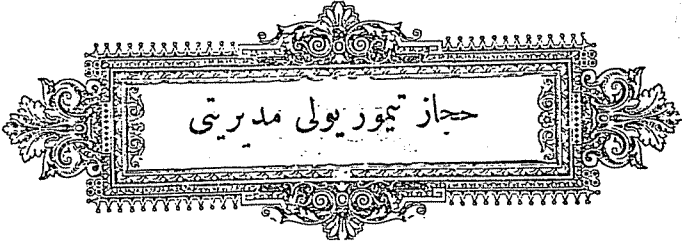 حجاز تیمور یولی مدیریتی